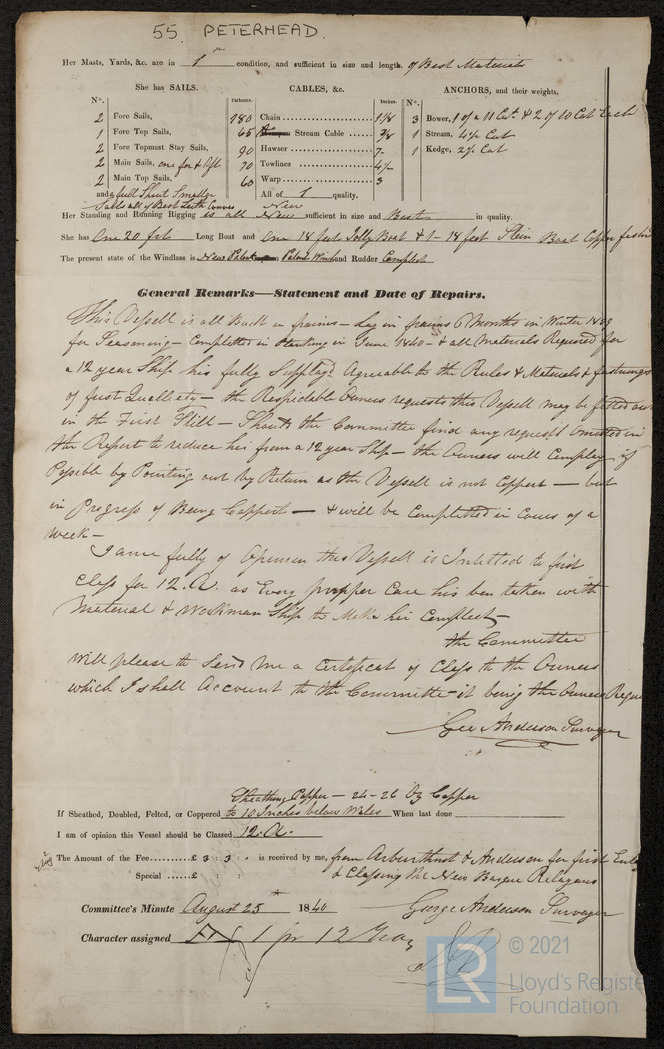 55. PETERHEAD.
Her Masts, Yards, &c. are in 1st condition, and sufficient in size and length. of Best Materials
She has SAILS.
CABLES, &c.
ANCHORS, and their weights.
N°.
Fathoms.
Inches.
N°.
2 Fore Sails,
180 Chain 1 1/8
3 Bower, 1 of 11 Cwt. & 2 of 10 Cwt Each
1 Fore Top Sails,
65 Stream Cable 7/8
1 Stream, 4 1/2 Cwt
2 Fore Topmast Stay Sails,
90 Hawser 7
1 Kedge, 2 1/2 Cwt
2 Main Sails, one for & Aft
70 Towlines 4 1/2
2 Main Top Sails,
60 Warp 3
and a full Shut Smaller
All of 1 quality.
Sails all of Best Leith Canvas
Her Standing and Running Rigging is all New sufficient in size and Best in quality.
She has One 20 feet Long Boat and one 18 feet Jolly Boat & 1 - 18 feet Boat Copper
The present state of the Windlass is New Patent and Rudder Complete
General Remarks—Statement and Date of Repairs.
This Vessell is all Built in frains - Lay in frains 6 Months in Winter
for Seasoning - Completted in Planking in June 1840 - & all Materials Required for
a 12 year Ship his fully Supplayd Agreeable to the Rules & Materials & fastnings
of first Quallety - the Respectable Owners requests this Vessell may be
in the First - Should the Committee find any request omitted in
the Report to reduce his from a 12 year Ship - the Owners will Comploy if
Possible by Pointing out by Return as the Vessell is not Coppert - but
in Progress of Being Coppert - & will be Completted in Coures of a
week -
I ame fully of Openion this Vessell is Intitled to first
Class for 12. A. as Every propper Care his ben taken with
Material & Workman Ship to Make hir Complect
the Committee
Will please to Send Me a Certificat of Class to the Owners
which I shall Account to the Committe - it being the Owners
Geo Anderson Surveyor
Sheathing Copper - 24-26 Oz Copper
If Sheathed, Doubled, Felted, or Coppered to 10 Inches below Wales When last done
I am of opinion this Vessel should be Classed 12. A.
The Amount of the Fee......£ 3 : 3 : . is received by me, from Arbuthnot & Anderson for first
Special ......£ : :
& Classing the New Barque
Committee's Minute August 25th 1840 George Anderson Surveyor
Character assigned 1 for 12 Years
LR
© 2021
Lloyd's Register
Foundation